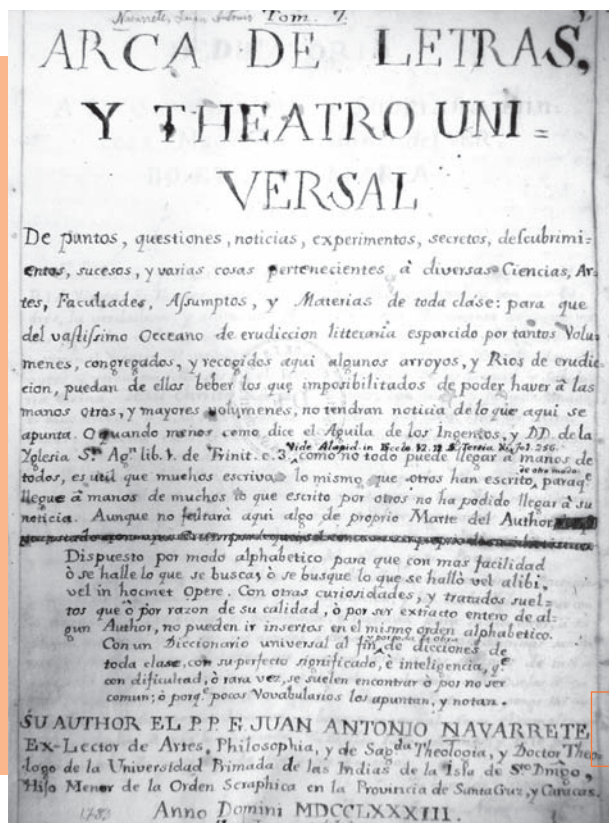 Navarrete, Juan Antonio Tom. 7.
ARCA DE LETRAS,
Y THEATRO UNI=
VERSAL
De puntos, questiones, noticias, experimentos, secretos, descubrimi=
entos, sucesos, y varias cosas pertenecientes à diversas Ciencias, Ar-
tes, Facultades, Assumptos, y Materias de toda clase: para que
del vastissimo Occeano de erudiccion litteraria esparcido por tantos Volu-
menes, congregados, y recogidos aqui algunos arroyos, y Rios de erudic-
cion, puedan de ellos beber los que imposibilitados de poder haver à las
manos otros, y mayores volumenes, no tendran noticia de lo que aqui se
apunta. O quando menos como dice el Aguila de los Ingenios, y DD. de la
Vide Alapid. in
Yglesia Sn. Agn. lib. 1. de Trinit. c. 3., como no todo puede llegar à manos de
todos, es util que muchos escrivan lo mismo que otros han escrito, paraqe
de otro modo
llegue à manos de muchos lo que escrito por otros no ha podido llegar à su
noticia. Aunque no faltarà aqui algo de proprio Marte del Author
Dispuesto por modo alphabetico para que con mas facilidad
ò se halle lo que se busca, ò se busque lo que se hallò vel alibi,
vel in hocmet Opere. Con otras curiosidades, y tratados suel=
tos que ò por razon de su calidad, ò por ser extracto entero de al-
gun Author, no pueden ir insertos en el mismo orden alphabetico.
Con un Diccionario universal al fin de dicciones de
toda clase, con su perfecto significado, è inteligencia, q.e
con dificultad, ò rara vez, se suelen encontrar ò por no ser
comun; ò porq.e pocos Vovabularios los apuntan, y notan.
SU AUTHOR EL P.P. F. JUAN ANTONIO NAVARRETE
Ex-Lector de Artes, Philosophia, y de Sagda Theologia, y Doctor Theo-
logo de la Universidad Primada de las Indias de la Isla de Sto Dmgo,
Hijo Menor de la Orden Seraphica en la Provincia de Santa Cruz, y Caracas.
1783 Anno Domini MDCCLXXXIII.